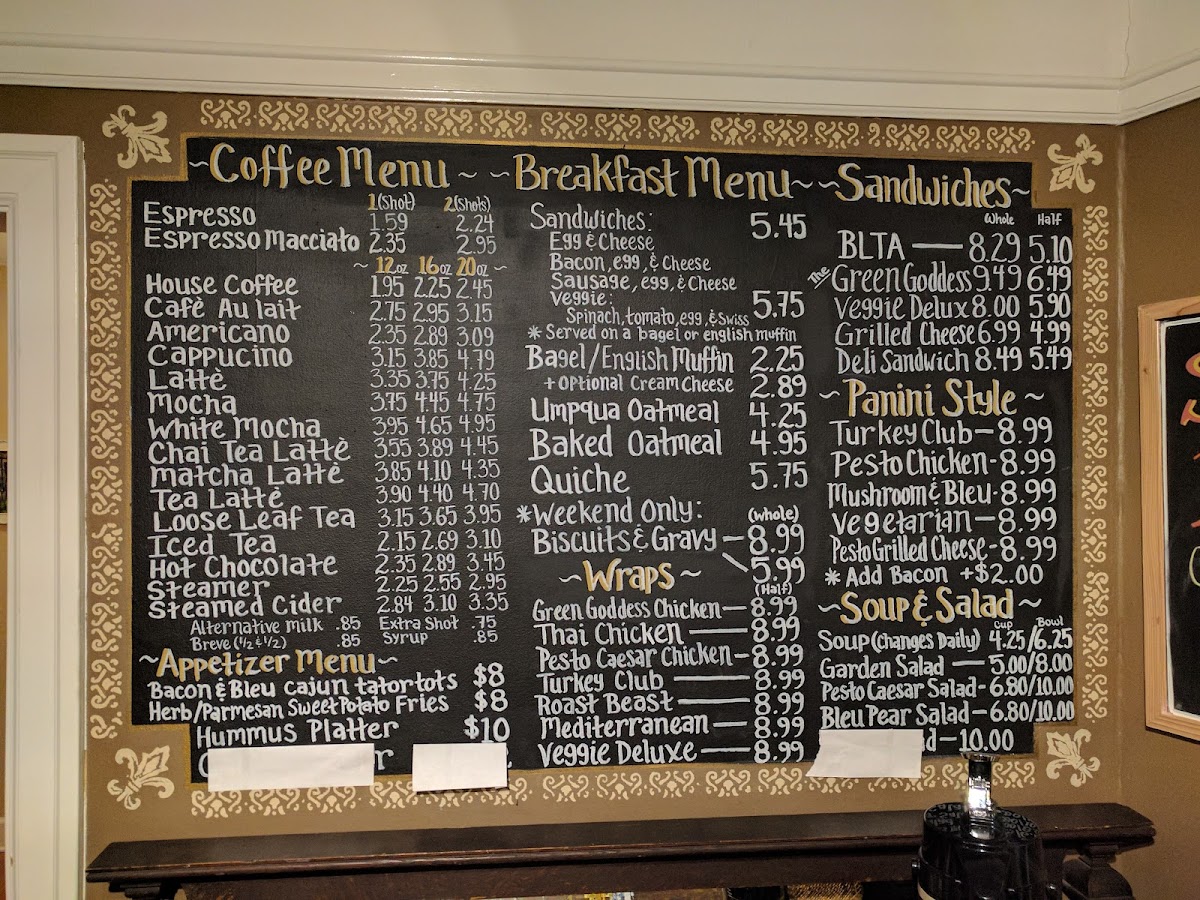 ~Coffee Menu~
1(Shot) 2(Shots)
Espresso 1.59 2.24
Espresso Macciato 2.35 2.95
~ 12oz 16oz 20oz ~
House Coffee 1.95 2.25 2.45
Cafè Au lait 2.75 2.95 3.15
Americano 2.35 2.89 3.09
Cappucino 3.15 3.85 4.79
Lattè 3.35 3.75 4.25
Mocha 3.75 4.45 4.75
White Mocha 3.95 4.65 4.95
Chai Tea Lattè 3.55 3.89 4.45
Matcha Lattè 3.85 4.10 4.35
Tea Lattè 3.90 4.40 4.70
Loose Leaf Tea 3.15 3.65 3.95
Iced Tea 2.15 2.69 3.10
Hot Chocolate 2.35 2.89 3.45
Steamer 2.25 2.55 2.95
Steamed Cider 2.84 3.10 3.35
Alternative milk .85 Extra Shot .75
Breve (½ & ½) .85 Syrup .85
~Appetizer Menu~
Bacon & Bleu cajun tatortots $8
Herb/Parmesan Sweet Potato Fries $8
Hummus Platter $10
~Breakfast Menu~
Sandwiches: 5.45
Egg & Cheese
Bacon, egg, & Cheese
Sausage, egg, & Cheese
Veggie: 5.75
Spinach, tomato, egg, & Swiss
* Served on a bagel or english muffin
Bagel/English Muffin 2.25
+Optional Cream Cheese 2.89
Umpqua Oatmeal 4.25
Baked Oatmeal 4.95
Quiche 5.75
*Weekend Only: (whole)
Biscuits & Gravy - 8.99
5.99
(Half)
~Wraps~
Green Goddess Chicken - 8.99
Thai Chicken - 8.99
Pesto Caesar Chicken - 8.99
Turkey Club - 8.99
Roast Beast - 8.99
Mediterranean - 8.99
Veggie Deluxe - 8.99
~Sandwiches~
Whole Half
BLTA - 8.29 5.10
The Green Goddess 9.49 6.49
Veggie Delux 8.00 5.90
Grilled Cheese 6.99 4.99
Deli Sandwich 8.49 5.49
~Panini Style~
Turkey Club - 8.99
Pesto Chicken - 8.99
Mushroom & Bleu - 8.99
Vegetarian - 8.99
Pesto Grilled Cheese - 8.99
* Add Bacon +$2.00
~Soup & Salad~
Cup Bowl
Soup (Changes Daily) 4.25/6.25
Garden Salad - 5.00/8.00
Pesto Caesar Salad - 6.80/10.00
Bleu Pear Salad - 6.80/10.00
d - 10.00